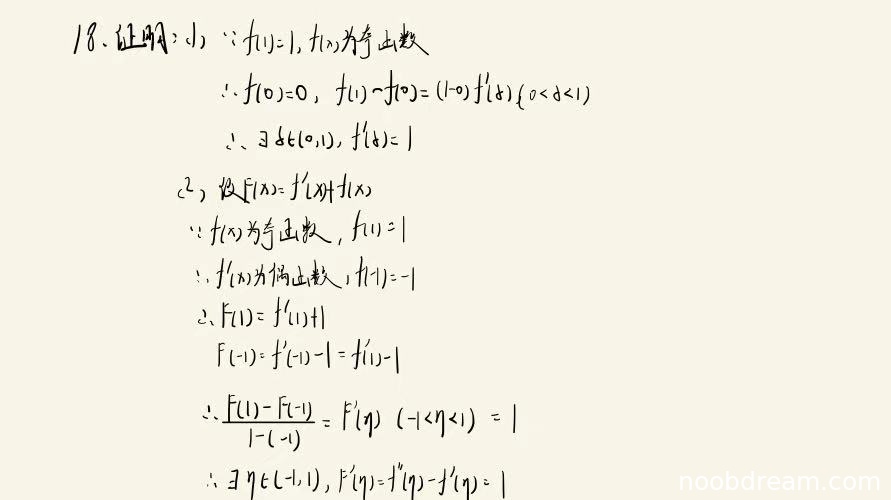 18、证明:(1) ∵ f(1)=1, f(x)为奇函数
∴ f(0)=0, f(1)-f(0)=(1-0)f'(δ){0<δ<1)
∴ ∃ δ∈(0,1), f'(δ)=1
(2) 设F(x)=f'(x)+f(x)
∵ f(x)为奇函数, f(1)=1
∴ f'(x)为偶函数, f(-1)=-1
∴ F(1)=f'(1)+1
F(-1)=f'(-1)-1=f'(1)-1
∴ \frac{F(1)-F(-1)}{1-(-1)} = F'(η) (-1<η<1) = 1
∴ ∃ η∈(-1,1), F'(η)=f''(η)-f'(η)=1
noobdream.com